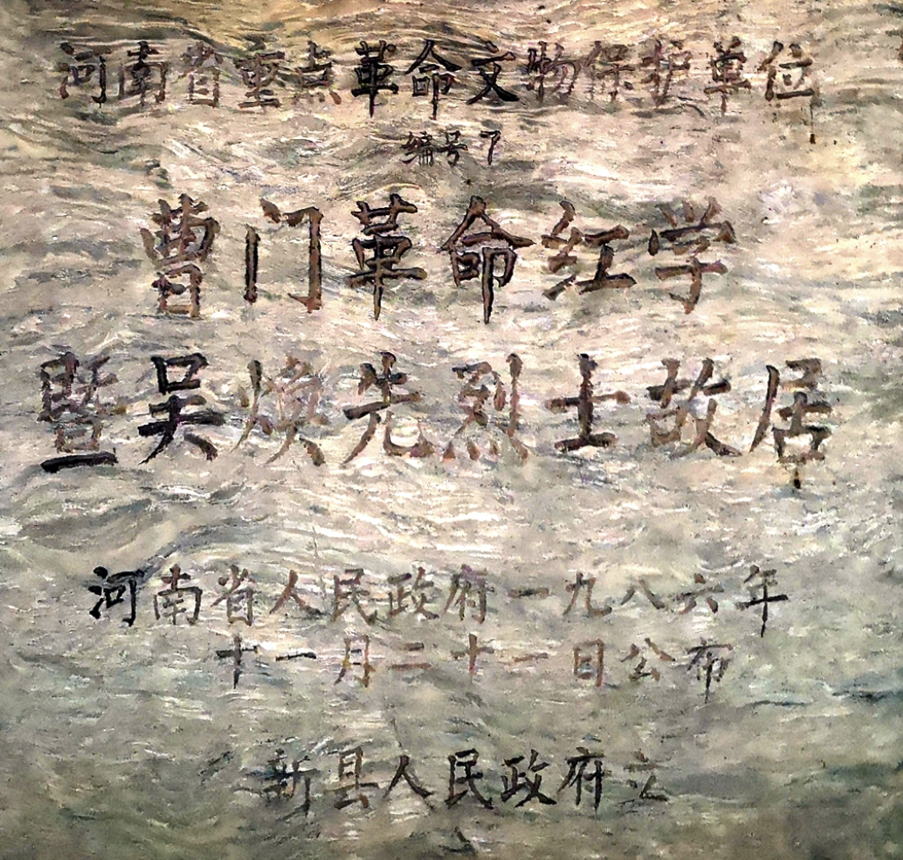 河南省重点革命文物保护单位
编号7
曹门革命红学
暨吴焕先烈士故居
河南省人民政府一九八六年
十一月二十一日公布
新县人民政府立